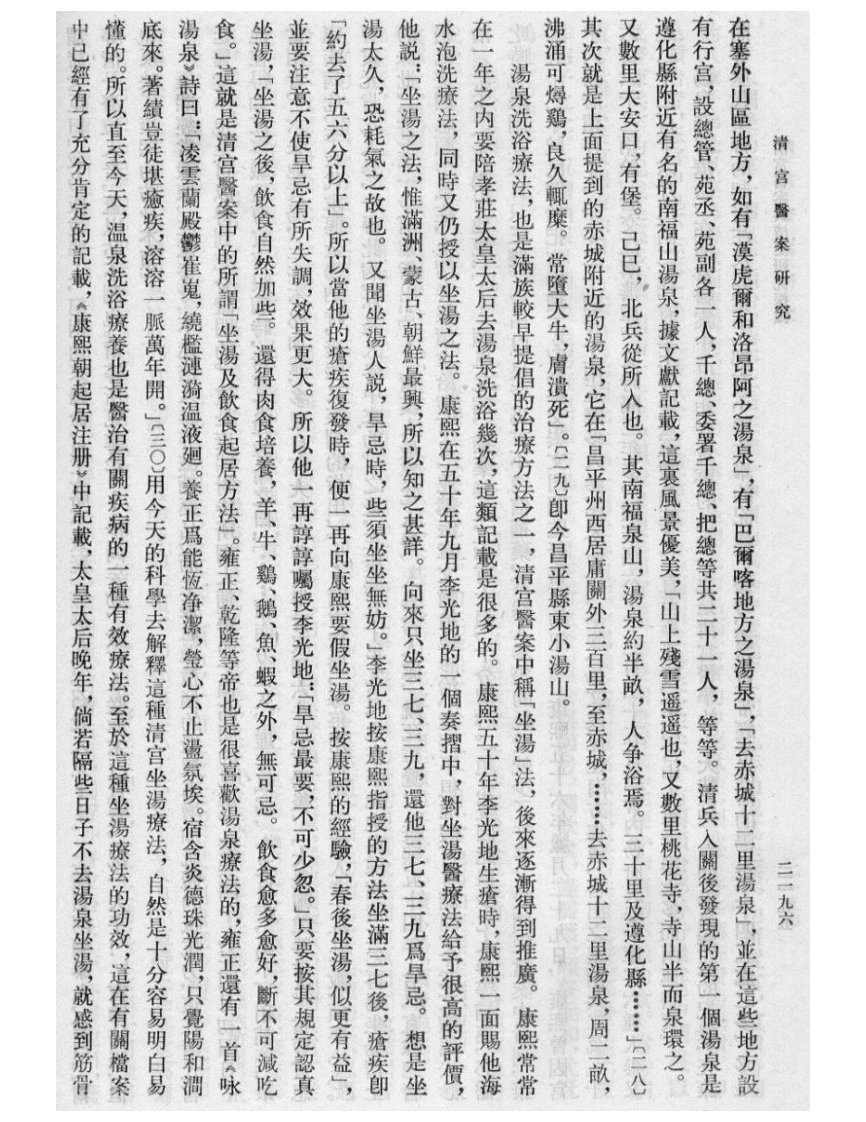 清宮醫案研究
二一九六
在塞外山區地方，如有「漠虎爾和洛昂阿之湯泉」，有「巴爾喀地方之湯泉」，「去赤城十二里湯泉」，並在這些地方設
有行宮，設總管、苑丞、苑副各一人，千總、委署千總、把總等共二十一人，等等。清兵入關後發現的第一個湯泉是
遵化縣附近有名的南福山湯泉，據文獻記載，這裏風景優美，「山上殘雪遥遥也，又數里桃花寺，寺山半而泉環之。
又數里大安口，有堡。己巳，北兵從所入也。其南福泉山，湯泉約半畝，人争浴焉。三十里及遵化縣……」〔二八〕
其次就是上面提到的赤城附近的湯泉，它在「昌平州西居庸關外三百里，至赤城，……去赤城十二里湯泉，周二畝，
沸涌可燖鷄，良久輒糜。常墮大牛，膚潰死」。〔二九〕卽今昌平縣東小湯山。
湯泉洗浴療法，也是滿族較早提倡的治療方法之一，清宮醫案中稱「坐湯」法，後來逐漸得到推廣。康熙常常
在一年之内要陪孝莊太皇太后去湯泉洗浴幾次，這類記載是很多的。康熙五十年李光地生瘡時，康熙一面賜他海
水泡洗療法，同時又仍授以坐湯之法。康熙在五十年九月李光地的一個奏摺中，對坐湯醫療法給予很高的評價，
他説：「坐湯之法，惟滿洲、蒙古、朝鮮最興，所以知之甚詳。向來只坐三七、三九，還他三七、三九爲旱忌。想是坐
湯太久，恐耗氣之故也。又聞坐湯人説，旱忌時，些須坐坐無妨。」李光地按康熙指授的方法坐滿三七後，瘡疾卽
「約去了五六分以上」。所以當他的瘡疾復發時，便一再向康熙要假坐湯。按康熙的經驗，「春後坐湯，似更有益」，
並要注意不使旱忌有所失調，效果更大。所以他一再諄諄囑授李光地：「旱忌最要，不可少忽。」只要按其規定認真
坐湯，「坐湯之後，飲食自然加些。還得肉食培養，羊、牛、鷄、鵝、魚、蝦之外，無可忌。飲食愈多愈好，斷不可減吃
食。」這就是清宮醫案中的所謂「坐湯及飲食起居方法」。雍正、乾隆等帝也是很喜歡湯泉療法的，雍正還有一首《咏
湯泉》詩曰：「凌雲蘭殿鬱崔嵬，繞檻漣漪温液廻。養正爲能恆净潔，瑩心不止盪氛埃。宿含炎德珠光潤，只覺陽和澗
底來。著績豈徒堪癒疾，溶溶一脈萬年開。」〔三〇〕用今天的科學去解釋這種清宮坐湯療法，自然是十分容易明白易
懂的。所以直至今天，温泉洗浴療養也是醫治有關疾病的一種有效療法。至於這種坐湯療法的功效，這在有關檔案
中已經有了充分肯定的記載，《康熙朝起居注册》中記載，太皇太后晚年，倘若隔些日子不去湯泉坐湯，就感到筋骨